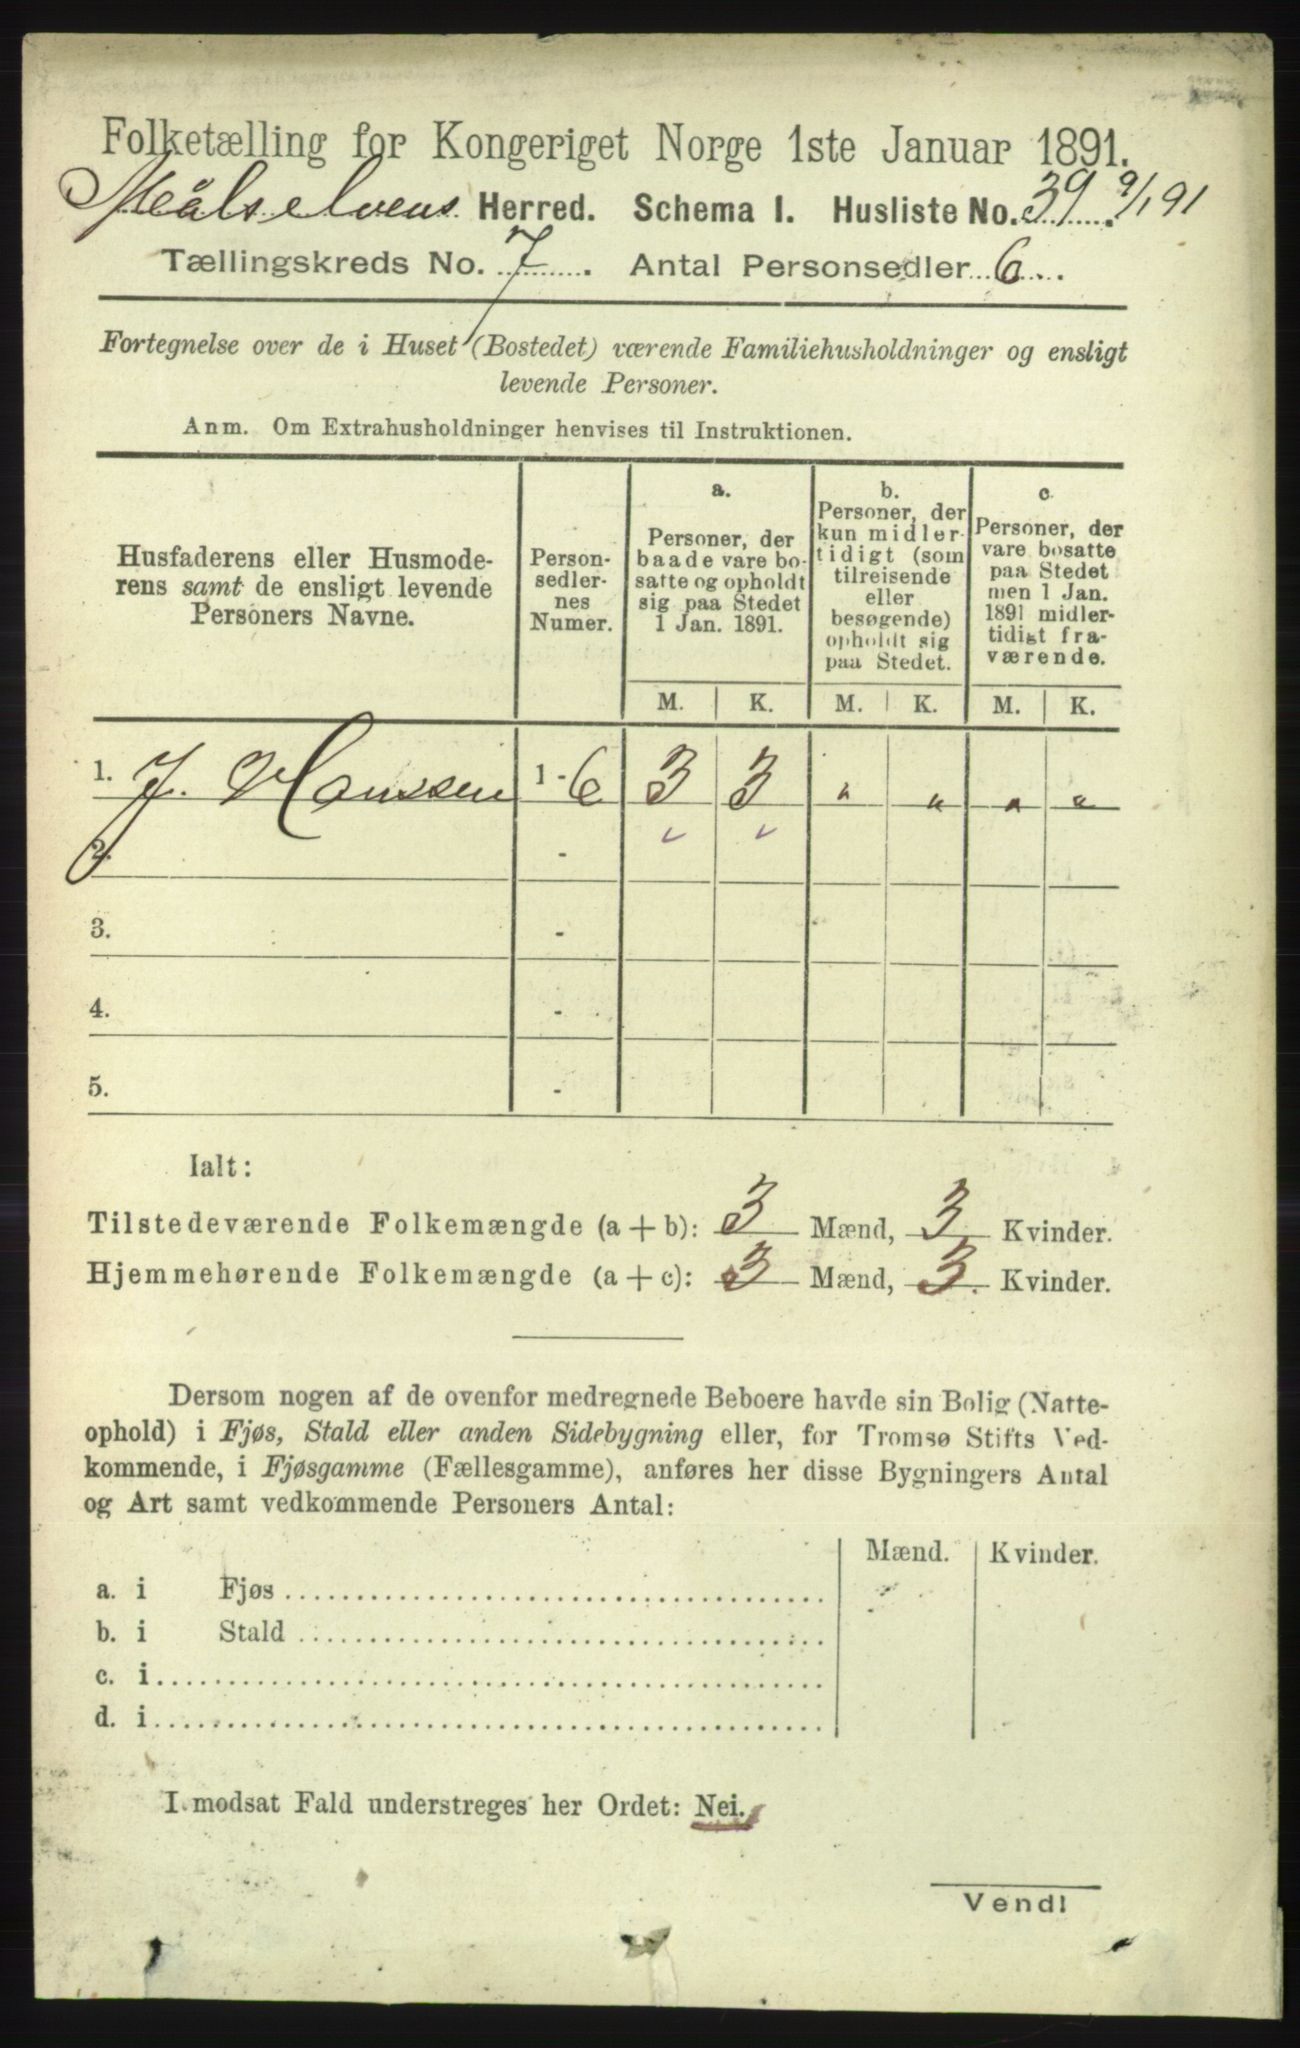 Folketælling for Kongeriget Norge 1ste Januar 1891.
Målselvens Herred. Schema I. Husliste No. 39. 9/1 91
Tællingskreds No. 7. Antal Personsedler 6.
Fortegnelse over de i Huset (Bostedet) værende Familiehusholdninger og ensligt
levende Personer.
Anm. Om Extrahusholdninger henvises til Instruktionen.
Husfaderens eller Husmode-
rens samt de ensligt levende
Personers Navne.
Person-
sedler-
nes
Numer.
a.
Personer, der
baade vare bo-
satte og opholdt
sig paa Stedet
1 Jan. 1891.
b.
Personer, der
kun midler-
tidigt (som
tilreisende
eller
besøgende)
opholdt sig
paa Stedet.
c
Personer, der
vare bosatte
paa Stedet
men 1 Jan.
1891 midler-
tidigt fra-
værende.
M. K. M. K. M. K.
1. J. Hanssen 1 - 6 3 3 " " " "
2. -
3. -
4. -
5. -
Ialt:
Tilstedeværende Folkemængde (a + b): 3 Mænd, 3 Kvinder.
Hjemmehørende Folkemængde (a + c): 3 Mænd, 3. Kvinder.
Dersom nogen af de ovenfor medregnede Beboere havde sin Bolig (Natte-
ophold) i Fjøs, Stald eller anden Sidebygning eller, for Tromsø Stifts Ved-
kommende, i Fjøsgamme (Fællesgamme), anføres her disse Bygningers Antal
og Art samt vedkommende Personers Antal:
Mænd. Kvinder.
a. i Fjøs
b. i Stald
c. i
d. i
I modsat Fald understreges her Ordet: Nei.
Vend!